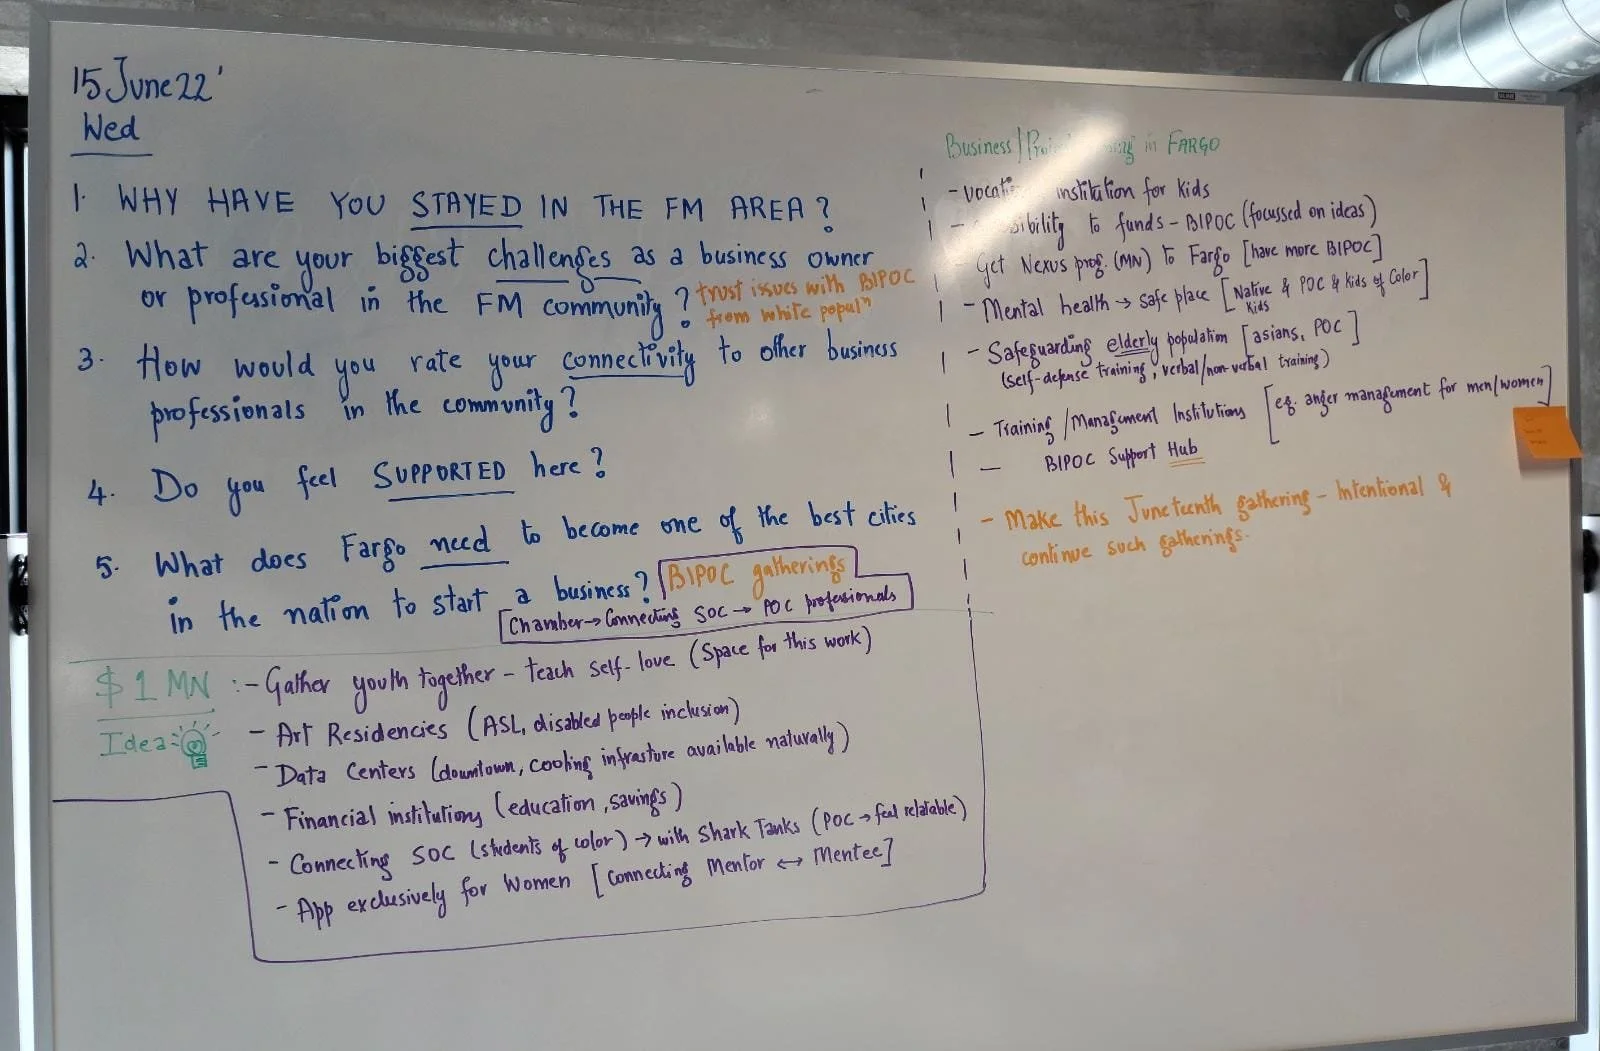 15 June 22'
Wed
1. WHY HAVE YOU STAYED IN THE FM AREA?
2. What are your biggest challenges as a business owner
or professional in the FM community?
trust issues with BIPOC
from white populⁿ
3. How would you rate your connectivity to other business
professionals in the community?
4. Do you feel SUPPORTED here?
5. What does Fargo need to become one of the best cities
in the nation to start a business?
BIPOC gatherings
[Chamber → Connecting SOC → POC professionals
$1 MN
Idea
:- Gather youth together - teach self-love (Space for this work)
- Art Residencies (ASL, disabled people inclusion)
- Data Centers (downtown, cooling infrasture available naturally)
- Financial institutions (education, savings)
- Connecting SOC (students of color) → with Shark Tanks (POC → feel relatable)
- App exclusively for Women [Connecting Mentor ↔ Mentee]
Business / in FARGO
- institution for kids
- to funds - BIPOC (focussed on ideas)
- Get Nexus prog. (MN) to Fargo [have more BIPOC]
- Mental health → safe place [Native & POC & kids of Color]
Kids
- Safeguarding elderly population [asians, POC]
(self-defense training, verbal/non-verbal training)
- Training / Management Institutions [eg. anger management for men/women]
- BIPOC Support Hub
- Make this Juneteenth gathering - Intentional &
continue such gatherings.